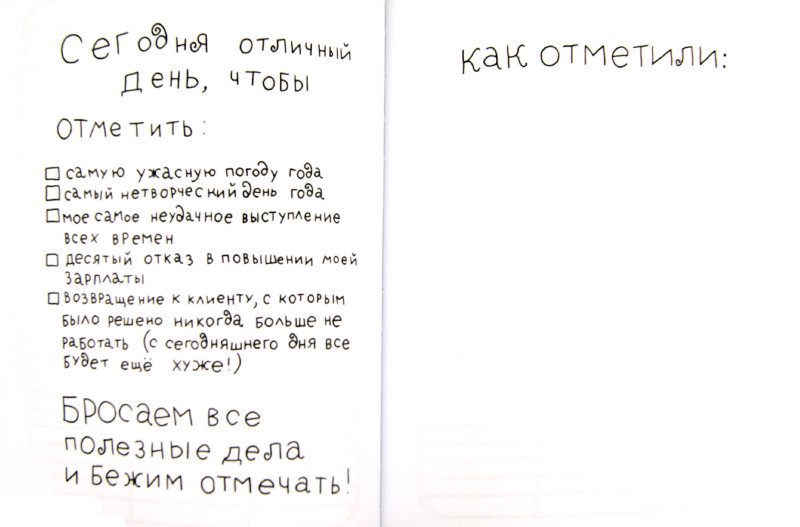 Сегодня отличный
день, чтобы
отметить:
самую ужасную погоду года
самый нетворческий день года
мое самое неудачное выступление
всех времен
десятый отказ в повышении моей
зарплаты
возвращение к клиенту, с которым
было решено никогда больше не
работать (с сегодняшнего дня все
будет ещё хуже!)
Бросаем все
полезные дела
и бежим отмечать!
как отметили: